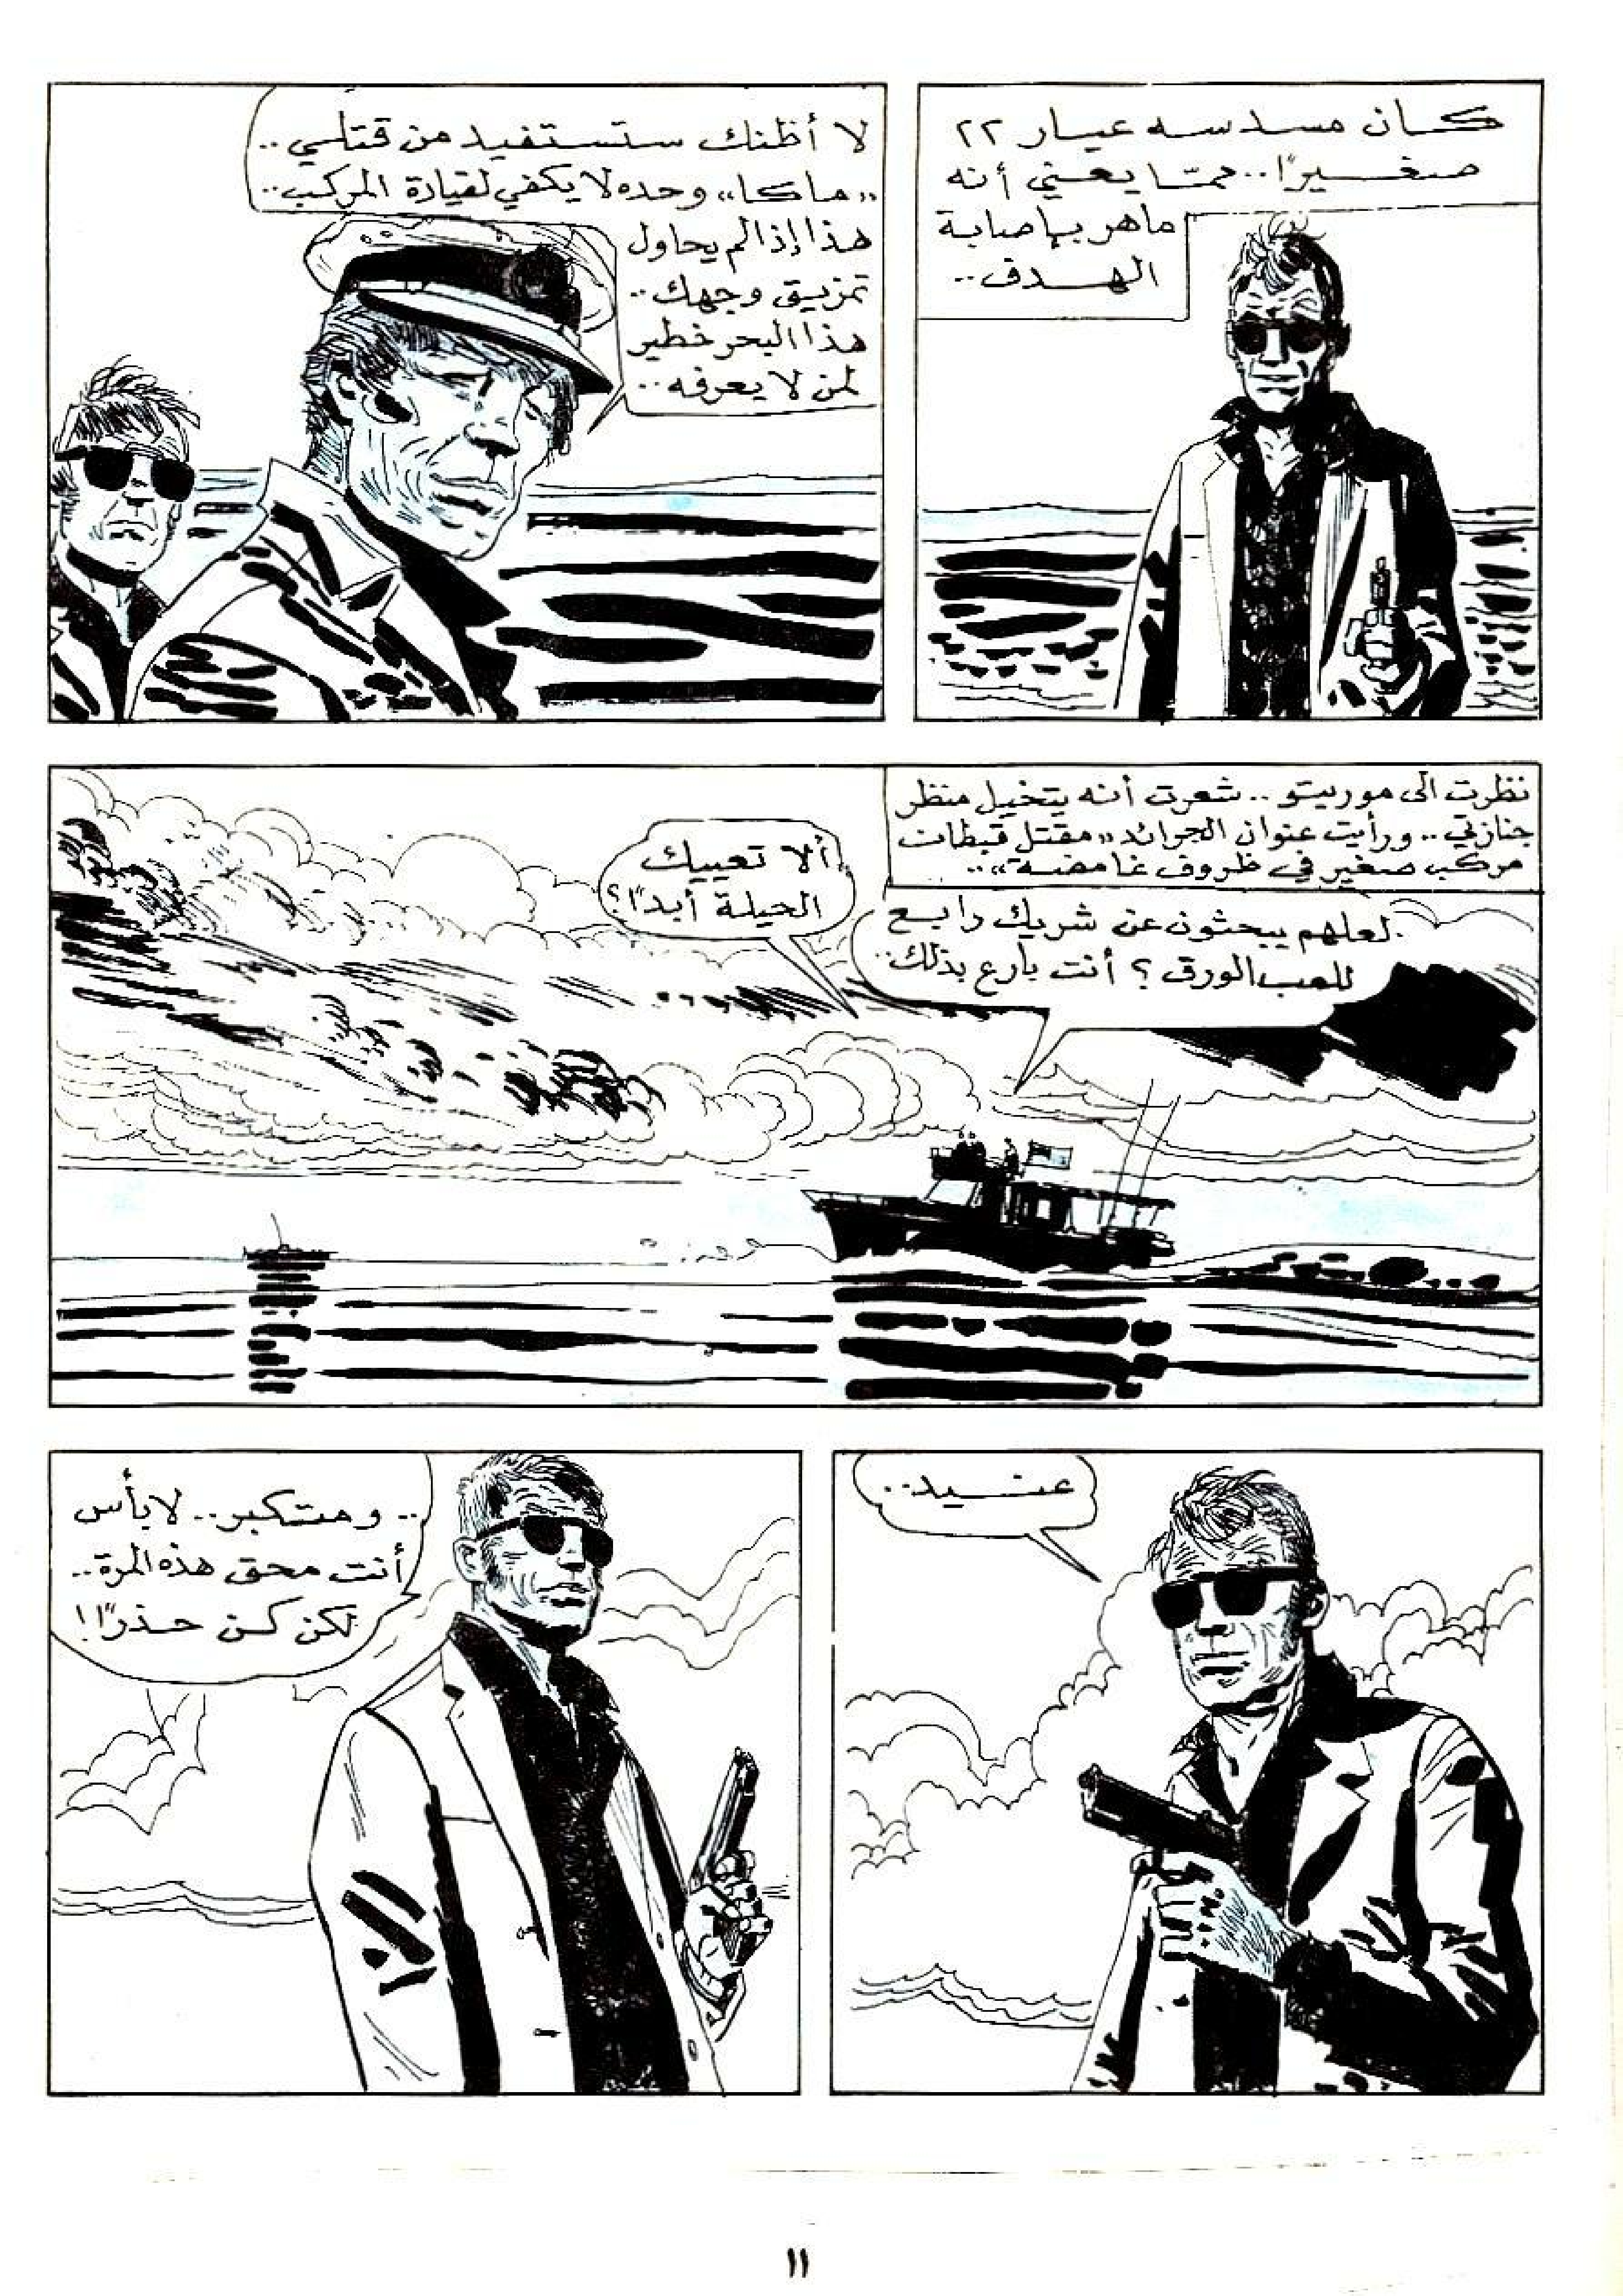 كان مسدسه عيار ٢٢
صغيرًا.. ممّا يعني أنه
ماهر بإصابة
الهدف..
لا أظنك ستستفيد من قتلي..
«ماكا» وحده لا يكفي لقيادة المركب..
هذا إذا لم يحاول
تمزيق وجهك..
هذا البحر خطير
لمن لا يعرفه..
نظرت الى موريتو.. شعرت أنه يتخيل منظر
جنازتي.. ورأيت عنوان الجرائد «مقتل قبطان
مركب صغير في ظروف غامضة»..
لعلهم يبحثون عن شريك رابع
للعب الورق؟ أنت بارع بذلك..
ألا تعييك
الحيلة أبدًا؟
عنيد..
.. ومتكبر.. لا بأس
أنت محق هذه المرة..
لكن كن حذرًا!
١١